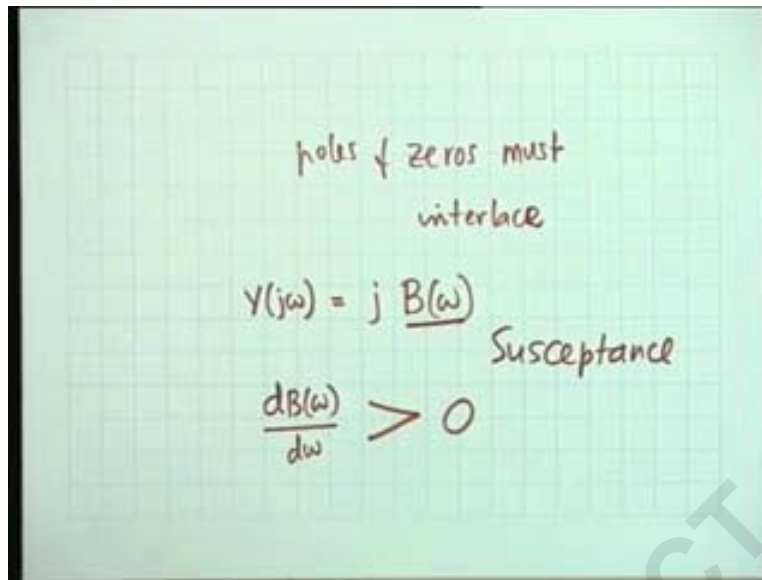 poles & zeros must
interlace
Y(jω) = j B(ω)
Susceptance
dB(ω)
dω
> 0
CT